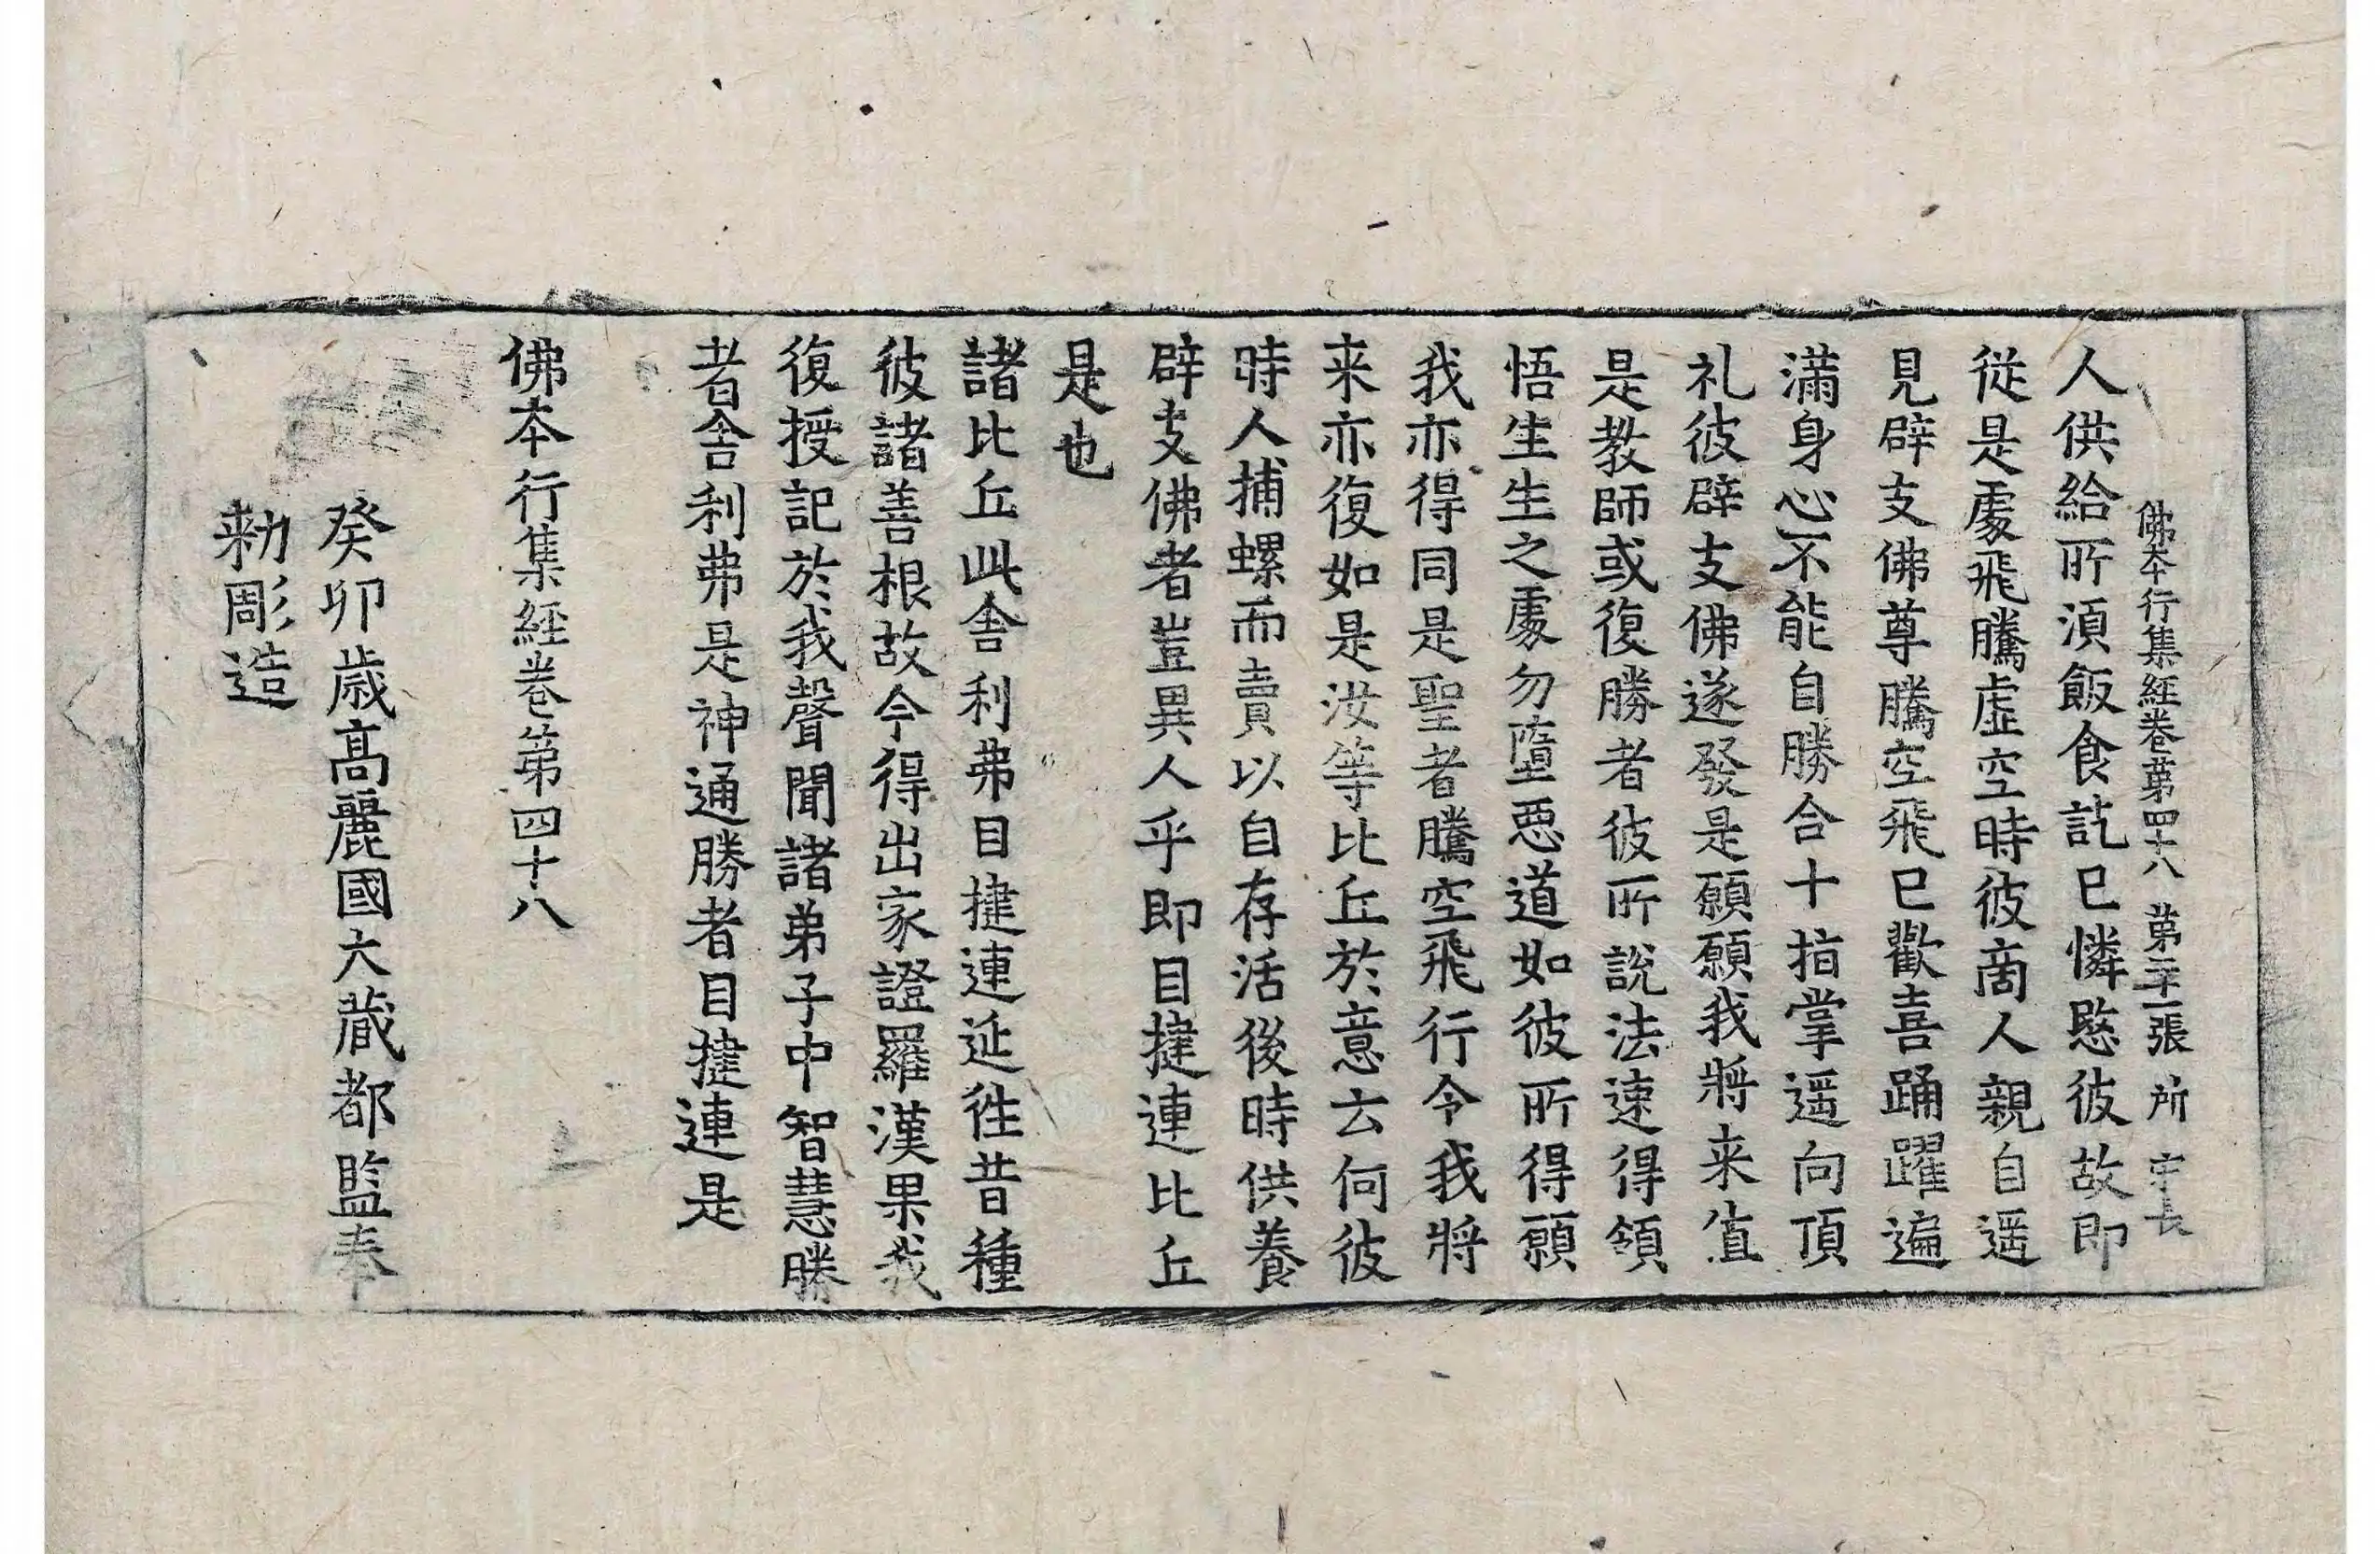 佛本行集經卷第四十八 第二十一張 所 字長
人供給所湏飯食訖已憐愍彼故即
從是處飛騰虛空時彼商人親自遥
見辟支佛尊騰空飛已歡喜踊躍遍
滿身心不能自勝合十指掌遥向頂
礼彼辟支佛遂發是願願我將来值
是教師或復勝者彼所說法速得領
悟生生之處勿墮惡道如彼所得願
我亦得同是聖者騰空飛行令我將
来亦復如是汝等比丘於意云何彼
時人捕螺而賣以自存活後時供養
辟支佛者豈異人乎即目揵連比丘
是也
諸比丘此舍利弗目揵連延往昔種
彼諸善根故今得出家證羅漢果我
復授記於我聲聞諸弟子中智慧勝
者舍利弗是神通勝者目揵連是
佛本行集經卷第四十八
癸卯歲高麗國大藏都監奉
勅彫造